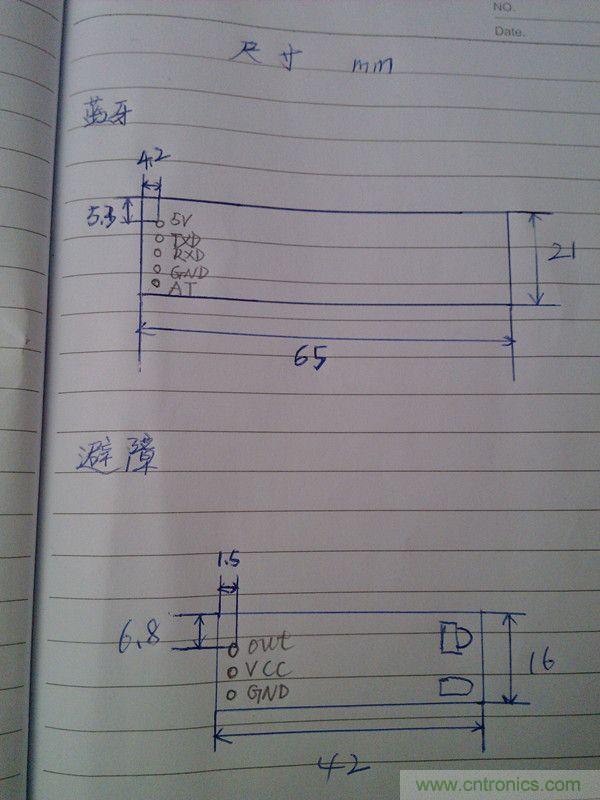 NO.
Date.
尺寸 mm
蓝牙
4.2
5.3
5V
TXD
RXD
GND
AT
21
65
避障
1.5
6.8
out
VCC
GND
16
42
www.cntronics.com